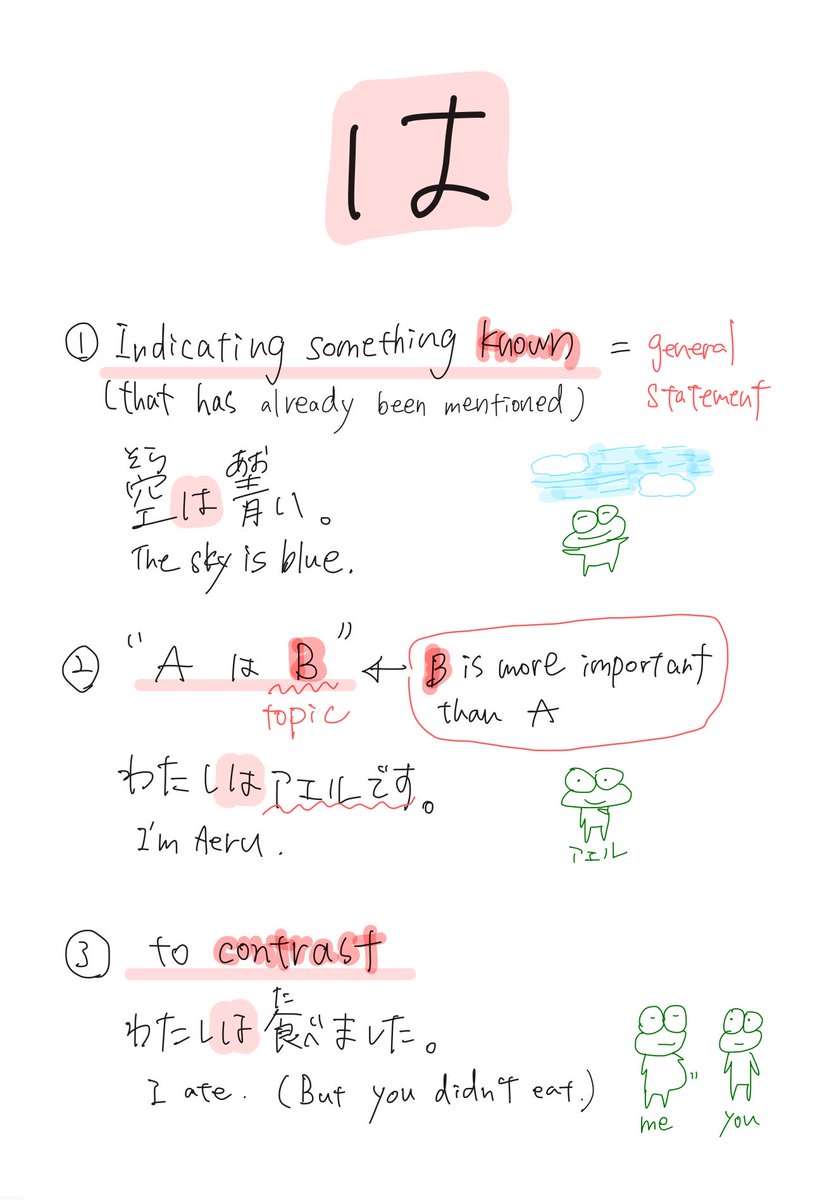 は
① Indicating something known = general
(that has already been mentioned) statement
そら あお
空は青い。
The sky is blue.
② "A は B" ← B is more important
topic than A
わたしはアエルです。
I'm Aeru.
アエル
③ to contrast
た
わたしは食べました。
I ate. (But you didn't eat.)
me you